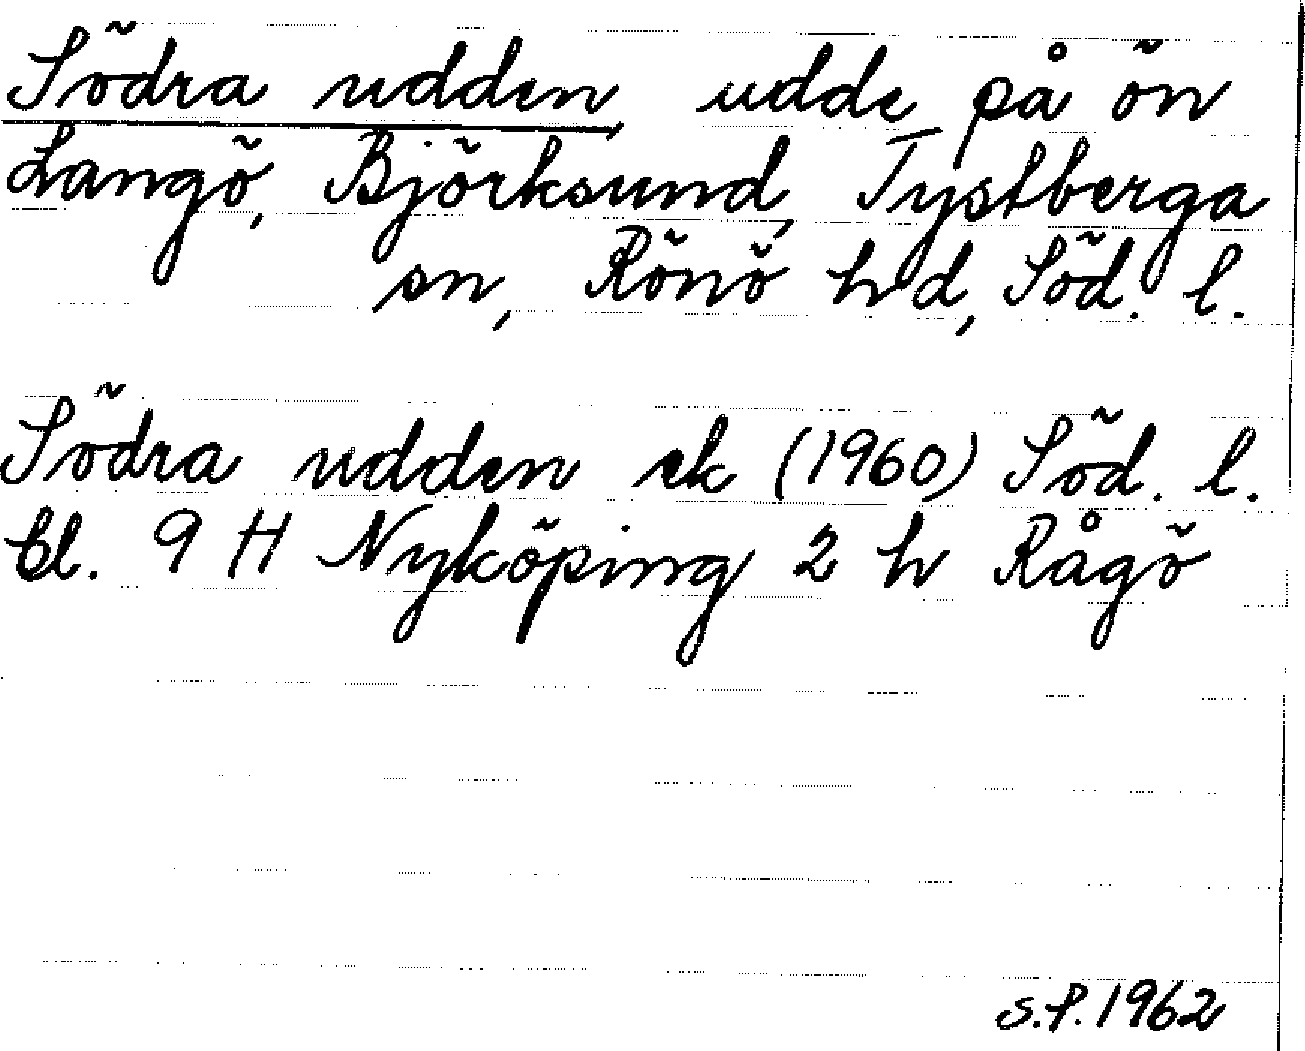 Södra udden, udde på ön
Langö, Björksund, Tystberga
sn, Rönö hd, Söd. l.
Södra udden ek (1960) Söd. l.
bl. 9 H Nyköping 2 h Rågö
S.P. 1962